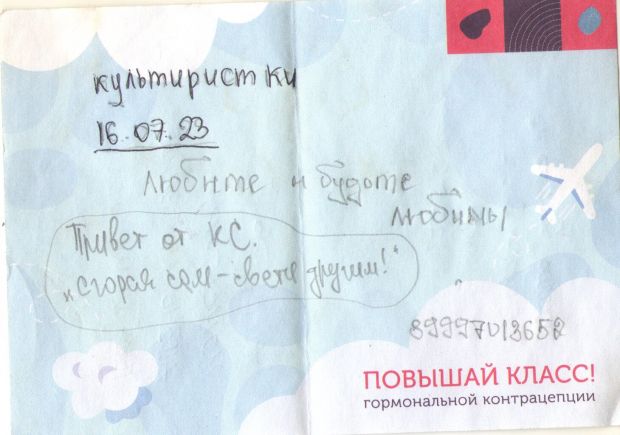 культурист ки
16.07.23
Любите и будете
любимы
Привет от КС.
"Сгорая сам - свети другим!"
89997013652
ПОВЫШАЙ КЛАСС!
гормональной контрацепции